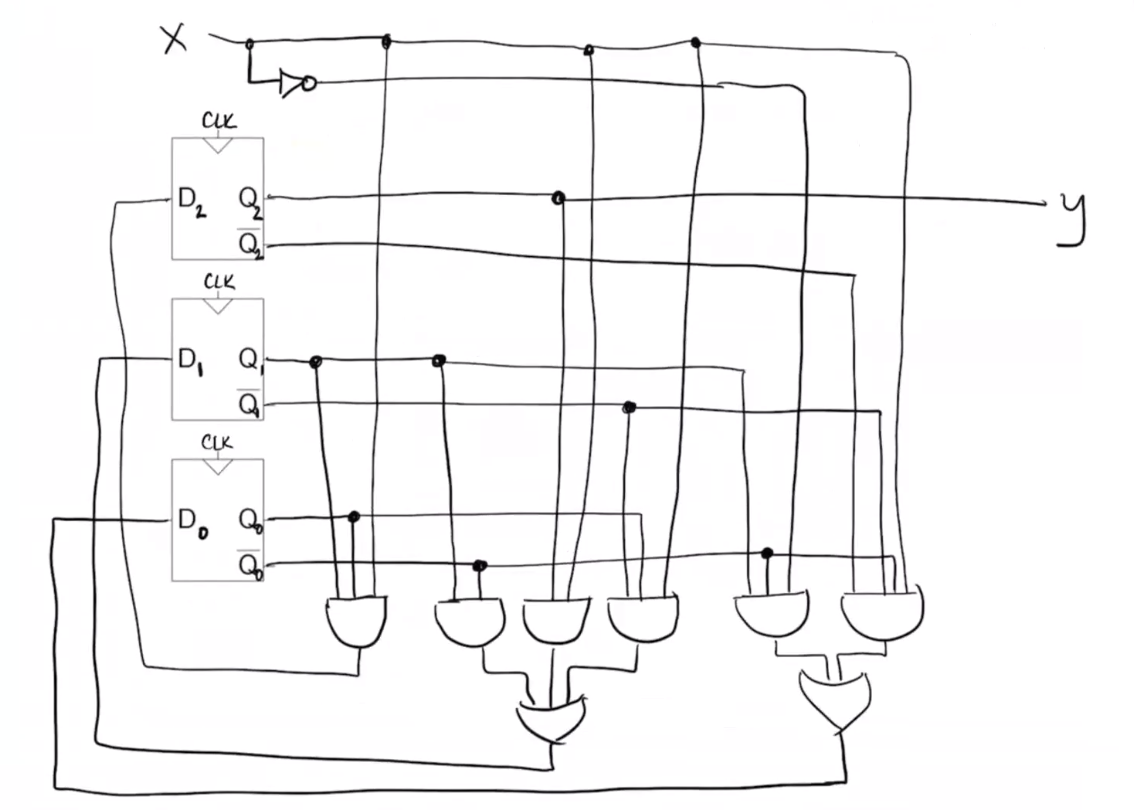 X
CLK
D2 Q2
Q̅2
y
CLK
D1 Q1
Q̅1
CLK
D0 Q0
Q̅0